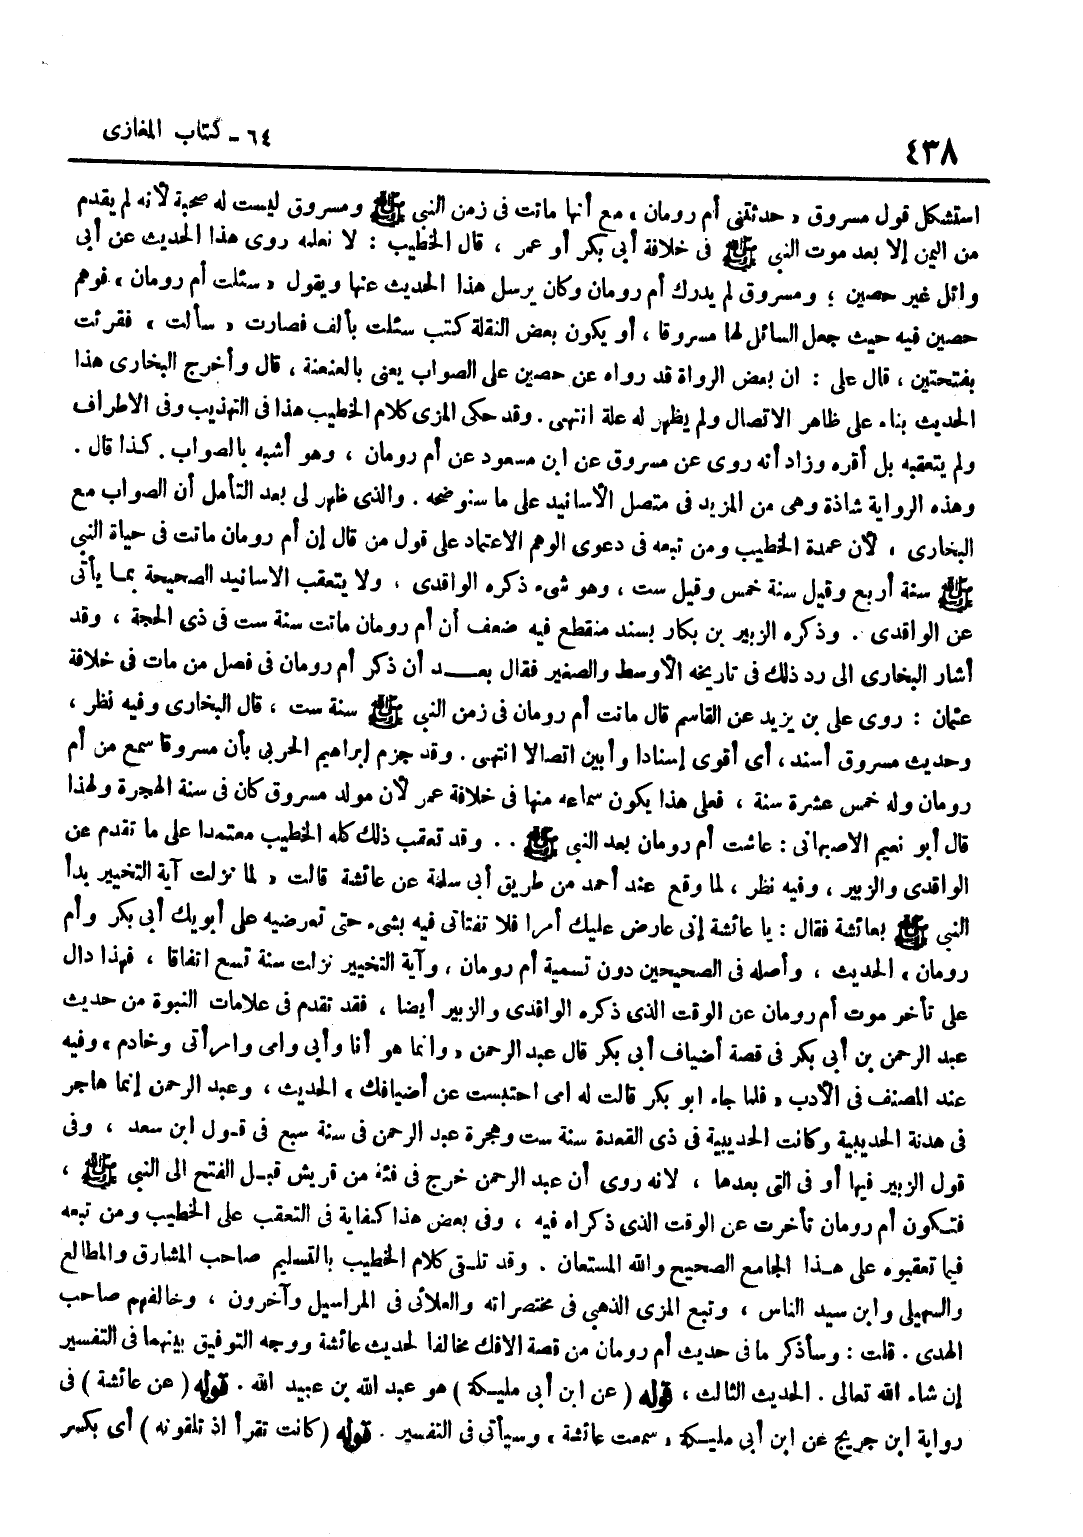 ٤٣٨
٦٤ - كتاب المغازى
استشكل قول مسروق « حدثتنى أم رومان ، مع أنها ماتت فى زمن النبى ﷺ ومسروق ليست له صحبة لأنه لم يقدم
من اليمن إلا بعد موت النبى ﷺ فى خلافة أبى بكر أو عمر ، قال الخطيب : لا نعلمه روى هذا الحديث عن أبى
وائل غير حصين ؛ ومسروق لم يدرك أم رومان وكان يرسل هذا الحديث عنها ويقول « سئلت أم رومان » فوهم
حصين فيه حيث جعل السائل لها مسروقا ، أو يكون بعض النقلة كتب سئلت بألف فصارت « سألت » فقرئت
بفتحتين ، قال على : ان بعض الرواة قد رواه عن حصين على الصواب يعنى بالعنعنة ، قال وأخرج البخارى هذا
الحديث بناء على ظاهر الاتصال ولم يظهر له علة انتهى . وقد حكى المزى كلام الخطيب هذا فى التهذيب وفى الاطراف
ولم يتعقبه بل أقره وزاد أنه روى عن مسروق عن ابن مسعود عن أم رومان ، وهو أشبه بالصواب . كذا قال .
وهذه الرواية شاذة وهى من المزيد فى متصل الأسانيد على ما سنوضحه . والذى ظهر لى بعد التأمل أن الصواب مع
البخارى ، لأن عمدة الخطيب ومن تبعه فى دعوى الوهم الاعتماد على قول من قال إن أم رومان ماتت فى حياة النبى
ﷺ سنة أربع وقيل سنة خمس وقيل ست ، وهو شىء ذكره الواقدى ، ولا يتعقب الاسانيد الصحيحة بما يأتى
عن الواقدى . وذكره الزبير بن بكار بسند منقطع فيه ضعف أن أم رومان ماتت سنة ست فى ذى الحجة ، وقد
أشار البخارى الى رد ذلك فى تاريخه الأوسط والصغير فقال بعد أن ذكر أم رومان فى فصل من مات فى خلافة
عثمان : روى على بن يزيد عن القاسم قال ماتت أم رومان فى زمن النبى ﷺ سنة ست ، قال البخارى وفيه نظر ،
وحديث مسروق أسند ، أى أقوى إسنادا وأبين اتصالا انتهى . وقد جزم إبراهيم الحربى بأن مسروقا سمع من أم
رومان وله خمس عشرة سنة ، فعلى هذا يكون سماعه منها فى خلافة عمر لأن مولد مسروق كان فى سنة الهجرة ولهذا
قال أبو نعيم الاصبهانى : عاشت أم رومان بعد النبى ﷺ . . وقد تعقب ذلك كله الخطيب معتمدا على ما تقدم عن
الواقدى والزبير ، وفيه نظر ، لما وقع عند أحمد من طريق أبى سلمة عن عائشة قالت « لما نزلت آية التخيير بدأ
النبى ﷺ بعائشة فقال : يا عائشة إنى عارض عليك أمرا فلا تفتاتى فيه بشىء حتى تعرضيه على أبويك أبى بكر وأم
رومان » الحديث ، وأصله فى الصحيحين دون تسمية أم رومان ، وآية التخيير نزلت سنة تسع اتفاقا ، فهذا دال
على تأخر موت أم رومان عن الوقت الذى ذكره الواقدى والزبير أيضا ، فقد تقدم فى علامات النبوة من حديث
عبد الرحمن بن أبى بكر فى قصة أضياف أبى بكر قال عبد الرحمن « وانما هو أنا وأبى وامى وامرأتى وخادم » وفيه
عند المصنف فى الأدب « فلما جاء ابو بكر قالت له امى احتبست عن أضيافك » الحديث ، وعبد الرحمن إنما هاجر
فى هدنة الحديبية وكانت الحديبية فى ذى القعدة سنة ست وهجرة عبد الرحمن فى سنة سبع فى قول ابن سعد ، وفى
قول الزبير فيها أو فى التى بعدها ، لانه روى أن عبد الرحمن خرج فى فئة من قريش قبل الفتح الى النبى ﷺ ،
فتكون أم رومان تأخرت عن الوقت الذى ذكراه فيه ، وفى بعض هذا كفاية فى التعقب على الخطيب ومن تبعه
فيما تعقبوه على هذا الجامع الصحيح والله المستعان . وقد تلقى كلام الخطيب بالتسليم صاحب المشارق والمطالع
والسهيلى وابن سيد الناس ، وتبع المزى الذهبى فى مختصراته والعلائى فى المراسيل وآخرون ، وخالفهم صاحب
الهدى . قلت : وسأذكر ما فى حديث أم رومان من قصة الافك مخالفا لحديث عائشة ووجه التوفيق بينهما فى التفسير
إن شاء الله تعالى . الحديث الثالث ، قوله ( عن ابن أبى مليكة ) هو عبد الله بن عبيد الله . قوله ( عن عائشة ) فى
رواية ابن جريج عن ابن أبى مليكة « سمعت عائشة » وسيأتى فى التفسير . قوله ( كانت تقرأ اذ تلقونه ) أى بكسر